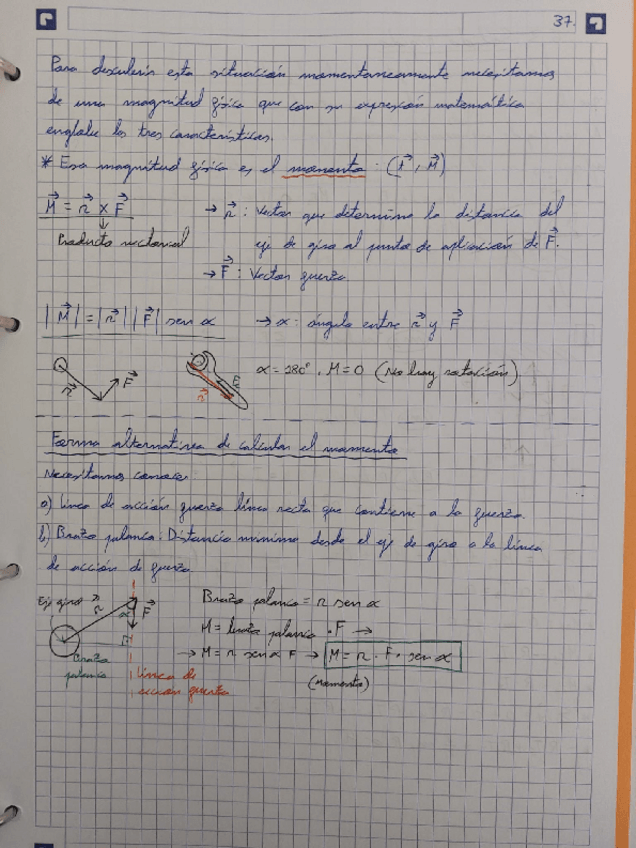 37.
Para descubrir esta situación momentaneamente necesitamos
de una magnitud física que con su expresión matemática
englobe las tres características.
* Esa magnitud física es el momento. (r⃗, M⃗)
M⃗ = r⃗ x F⃗ → r⃗: Vector que determina la distancia del
Producto vectorial eje de giro al punto de aplicación de F⃗.
→ F⃗: Vector fuerza.
|M⃗| = |r⃗| |F⃗| sen α → α: ángulo entre r⃗ y F⃗
r⃗ F⃗ r⃗ F⃗ α = 180°, M = 0 (No hay rotación).
Forma alternativa de calcular el momento
Necesitamos conocer
a) Línea de acción fuerza línea recta que contiene a la fuerza.
b) Brazo palanca: Distancia mínima desde el eje de giro a la línea
de acción de fuerza.
Eje giro r⃗ α F⃗ Brazo palanca = r sen α
M = brazo palanca · F →
→ M = r sen α F → M = r · F · sen α
Brazo palanca
Línea de acción fuerza
(Momento)